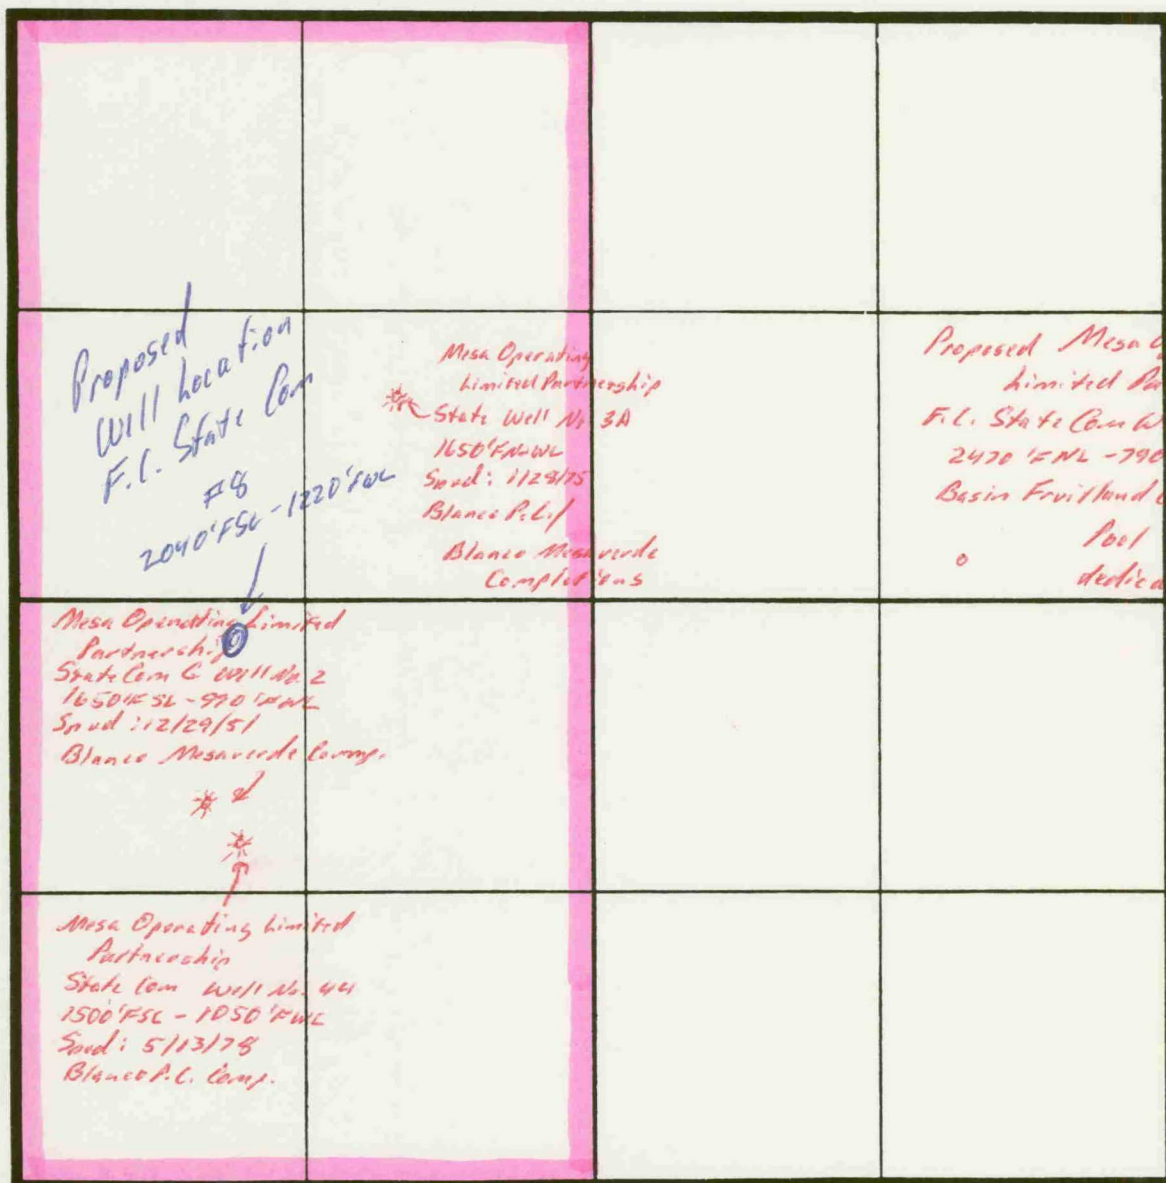 Proposed
Well Location
F.C. State Com
#8
2040'FSL-1220'FWL
Mesa Operating
Limited Partnership
State Well No 3A
1650'FN&WL
Spud: 1/28/75
Blanco P.C./
Blanco Mesaverde
Completions
Proposed Mesa O
Limited Pa
F.C. State Com W
2470'FNL-790
Basin Fruitland C
Pool
dedica
Mesa Operating Limited
Partnership
State Com G Well No. 2
1650'FSL-990'FWL
Spud: 12/29/51
Blanco Mesaverde Comp.
Mesa Operating Limited
Partnership
State Com Well No. 44
1500'FSL-1050'FWL
Spud: 5/13/78
Blanco P.C. Comp.